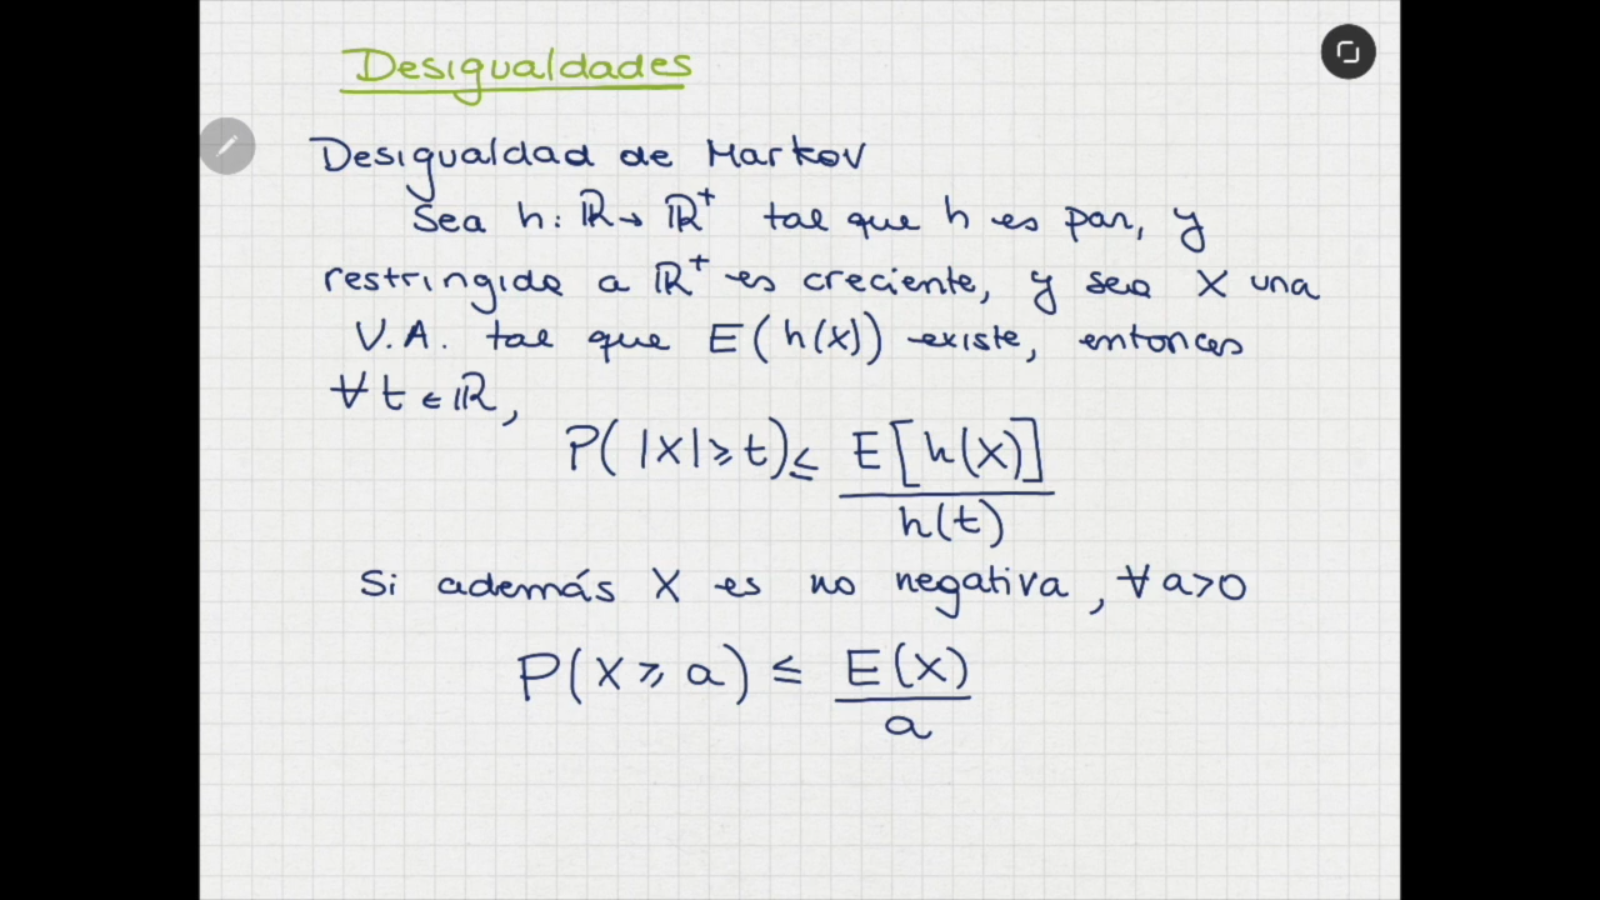 Desigualdades
Desigualdad de Markov
Sea h: ℝ → ℝ⁺ tal que h es par, y
restringida a ℝ⁺ es creciente, y sea X una
V.A. tal que E(h(X)) existe, entonces
∀ t ∈ ℝ,
P(|X| ≥ t) ≤ E[h(X)] / h(t)
Si además X es no negativa, ∀ a > 0
P(X ≥ a) ≤ E(X) / a